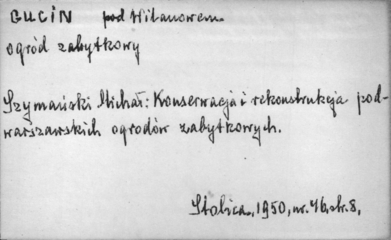 GUCIN pod Wilanowem
ogród zabytkowy
Szymański Michał: Konserwacja i rekonstrukcja pod-
warszawskich ogrodów zabytkowych.
Stolica, 1950, nr. 46, str. 8,